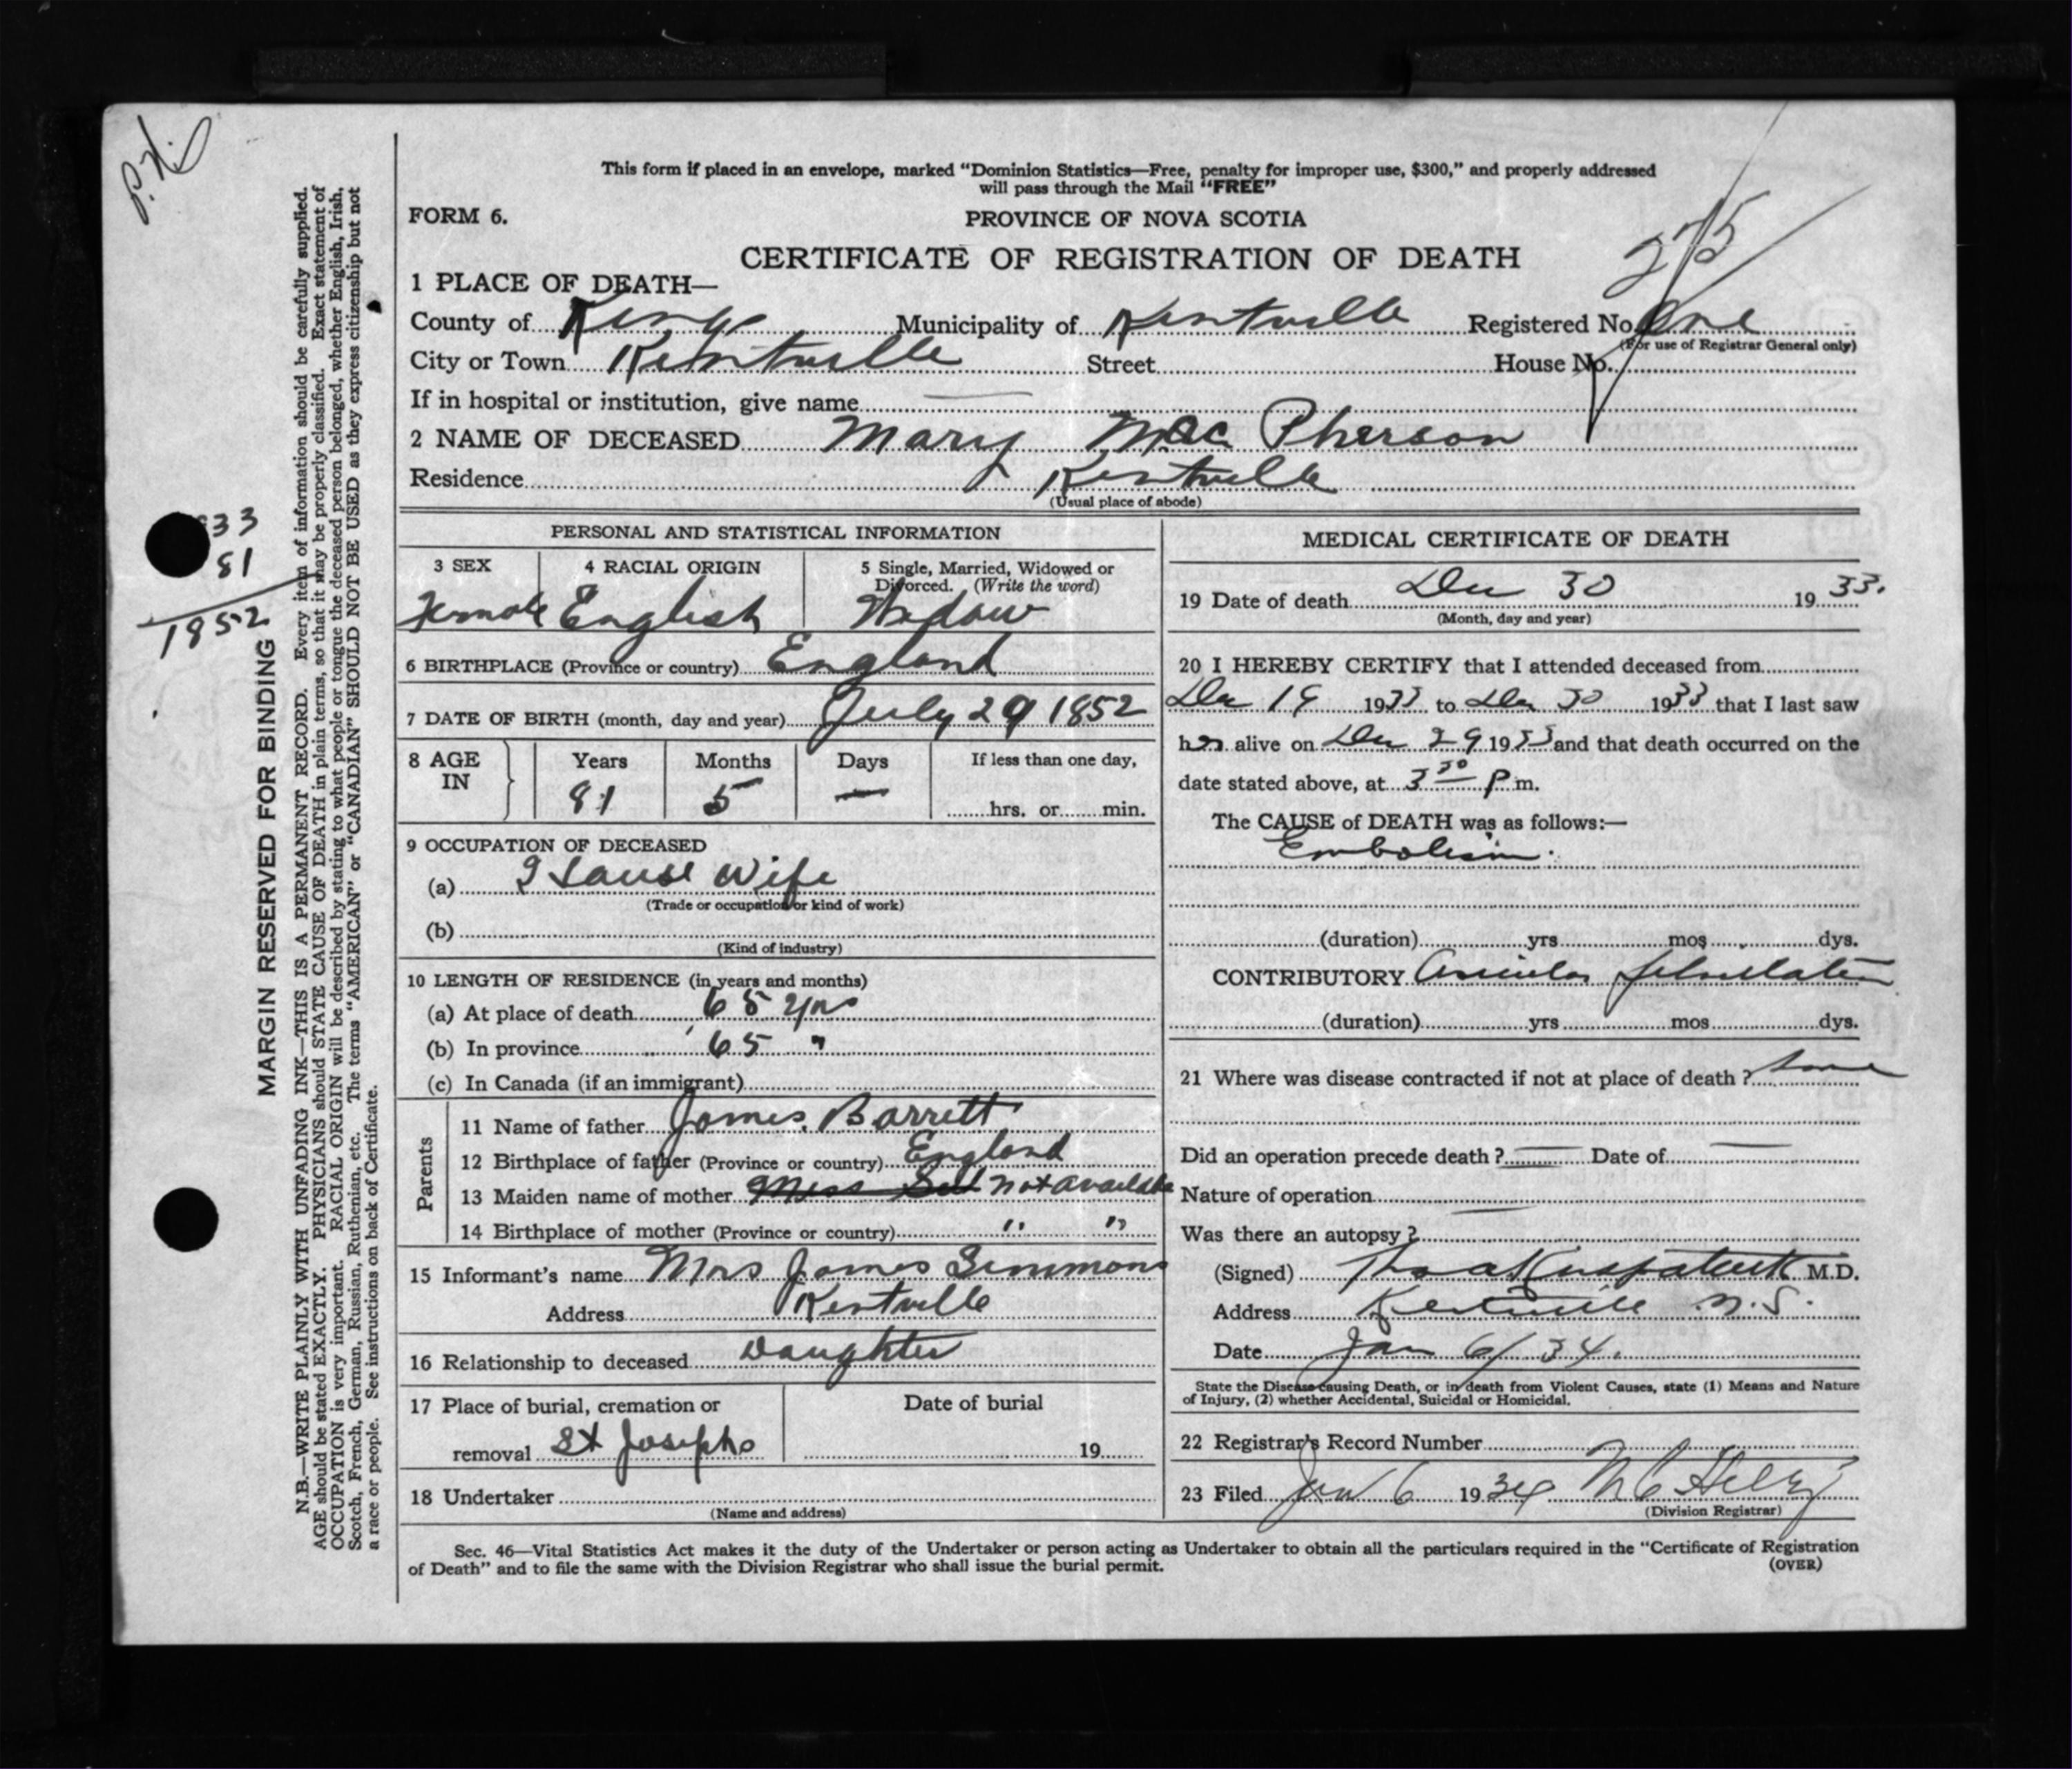 This form if placed in an envelope, marked "Dominion Statistics—Free, penalty for improper use, $300," and properly addressed
will pass through the Mail "FREE"
FORM 6.
PROVINCE OF NOVA SCOTIA
275
CERTIFICATE OF REGISTRATION OF DEATH
1 PLACE OF DEATH—
County of Kings Municipality of Kentville Registered No. One
(For use of Registrar General only)
City or Town Kentville Street House No.
If in hospital or institution, give name
2 NAME OF DECEASED Mary MacPherson
Residence Kentville
(Usual place of abode)
PERSONAL AND STATISTICAL INFORMATION
3 SEX 4 RACIAL ORIGIN 5 Single, Married, Widowed or
Divorced. (Write the word)
Female English Widow
6 BIRTHPLACE (Province or country) England
7 DATE OF BIRTH (month, day and year) July 29 1852
8 AGE IN Years Months Days If less than one day,
81 5 — hrs. or min.
9 OCCUPATION OF DECEASED
(a) House Wife
(Trade or occupation or kind of work)
(b)
(Kind of industry)
10 LENGTH OF RESIDENCE (in years and months)
(a) At place of death 65 yrs
(b) In province 65 "
(c) In Canada (if an immigrant)
Parents
11 Name of father James Barrett
12 Birthplace of father (Province or country) England
13 Maiden name of mother Miss not available
14 Birthplace of mother (Province or country) " "
15 Informant's name Mrs James Simmons
Address Kentville
16 Relationship to deceased Daughter
17 Place of burial, cremation or Date of burial
removal St Josephs 19
18 Undertaker
(Name and address)
MEDICAL CERTIFICATE OF DEATH
19 Date of death Dec 30 1933.
(Month, day and year)
20 I HEREBY CERTIFY that I attended deceased from
Dec 19 1933 to Dec 30 1933 that I last saw
her alive on Dec 29 1933 and that death occurred on the
date stated above, at 3 30 p m.
The CAUSE of DEATH was as follows:—
Embolism.
(duration) yrs mos dys.
CONTRIBUTORY Auricular
(duration) yrs mos dys.
21 Where was disease contracted if not at place of death?
Did an operation precede death? — Date of —
Nature of operation
Was there an autopsy?
(Signed) M.D.
Address Kentville N.S.
Date Jan 6/34.
State the Disease causing Death, or in death from Violent Causes, state (1) Means and Nature
of Injury, (2) whether Accidental, Suicidal or Homicidal.
22 Registrar's Record Number
23 Filed Jan 6 1934
(Division Registrar)
Sec. 46—Vital Statistics Act makes it the duty of the Undertaker or person acting as Undertaker to obtain all the particulars required in the "Certificate of Registration
of Death" and to file the same with the Division Registrar who shall issue the burial permit.
(OVER)
MARGIN RESERVED FOR BINDING
N.B.—WRITE PLAINLY WITH UNFADING INK—THIS IS A PERMANENT RECORD. Every item of information should be carefully supplied.
AGE should be stated EXACTLY. PHYSICIANS should STATE CAUSE OF DEATH in plain terms, so that it may be properly classified. Exact statement of
OCCUPATION is very important. RACIAL ORIGIN will be described by stating to what people or tongue the deceased person belonged, whether English, Irish,
Scotch, French, German, Russian, Ruthenian, etc. The terms "AMERICAN" or "CANADIAN" SHOULD NOT BE USED as they express citizenship but not
a race or people. See instructions on back of Certificate.
33
81
1852